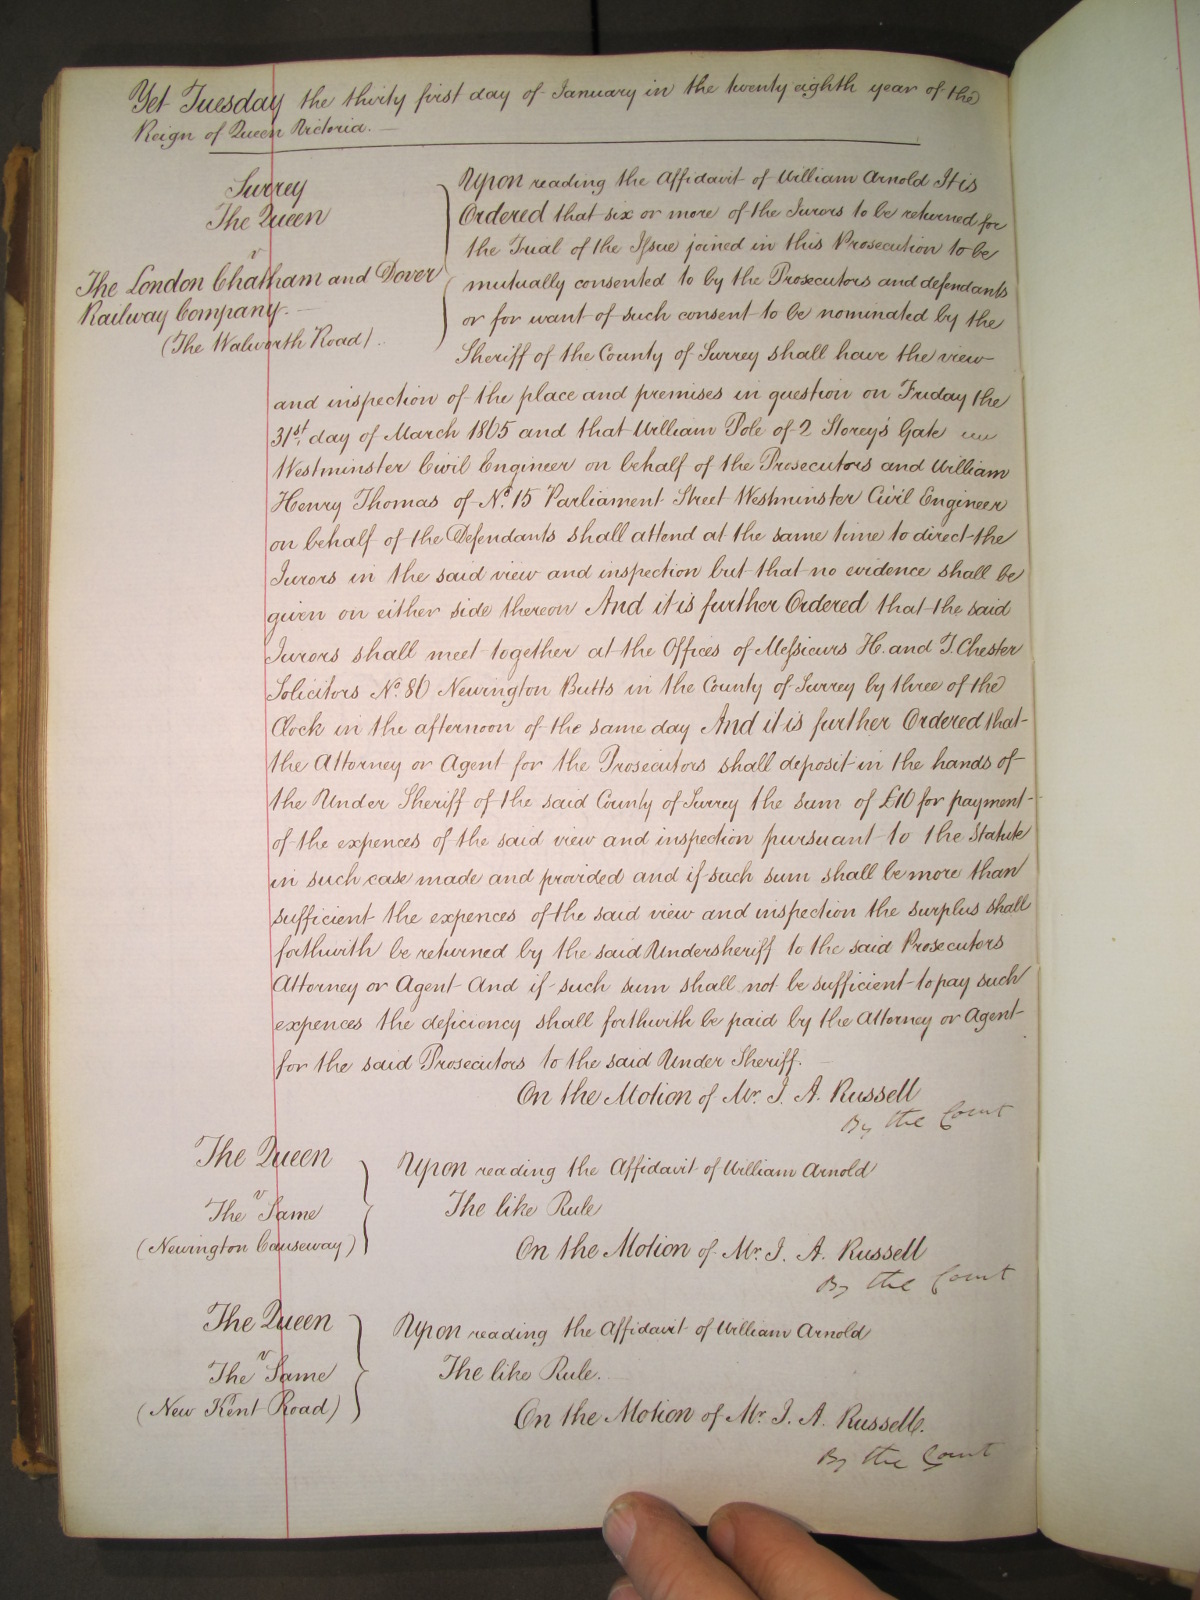 Yet Tuesday the thirty first day of January in the twenty eighth year of the
Reign of Queen Victoria.
Surrey
The Queen
v
The London Chatham and Dover
Railway Company.
(The Walworth Road).
Upon reading the Affidavit of William Arnold It is
Ordered that six or more of the Jurors to be returned for
the Trial of the Issue joined in this Prosecution to be
mutually consented to by the Prosecutors and defendants
or for want of such consent to be nominated by the
Sheriff of the County of Surrey shall have the view
and inspection of the place and premises in question on Friday the
31st. day of March 1865 and that William Pole of 2 Storey's Gate
Westminster Civil Engineer on behalf of the Prosecutors and William
Henry Thomas of No. 15 Parliament Street Westminster Civil Engineer
on behalf of the Defendants shall attend at the same time to direct the
Jurors in the said view and inspection but that no evidence shall be
given on either side thereon And it is further Ordered that the said
Jurors shall meet together at the Offices of Messieurs H. and T. Chester
Solicitors No. 86 Newington Butts in the County of Surrey by three of the
Clock in the afternoon of the same day And it is further Ordered that
the Attorney or Agent for the Prosecutors shall deposit in the hands of
the Under Sheriff of the said County of Surrey the sum of £10 for payment
of the expences of the said view and inspection pursuant to the Statute
in such case made and provided and if such sum shall be more than
sufficient the expences of the said view and inspection the surplus shall
forthwith be returned by the said Undersheriff to the said Prosecutors
Attorney or Agent And if such sum shall not be sufficient to pay such
expences the deficiency shall forthwith be paid by the Attorney or Agent
for the said Prosecutors to the said Under Sheriff.
On the Motion of Mr. J. A. Russell
By the Court
The Queen
v
The Same
(Newington Causeway)
Upon reading the Affidavit of William Arnold
The like Rule
On the Motion of Mr. J. A. Russell
By the Court
The Queen
v
The Same
(New Kent Road)
Upon reading the Affidavit of William Arnold
The like Rule.
On the Motion of Mr. J. A. Russell.
By the Court